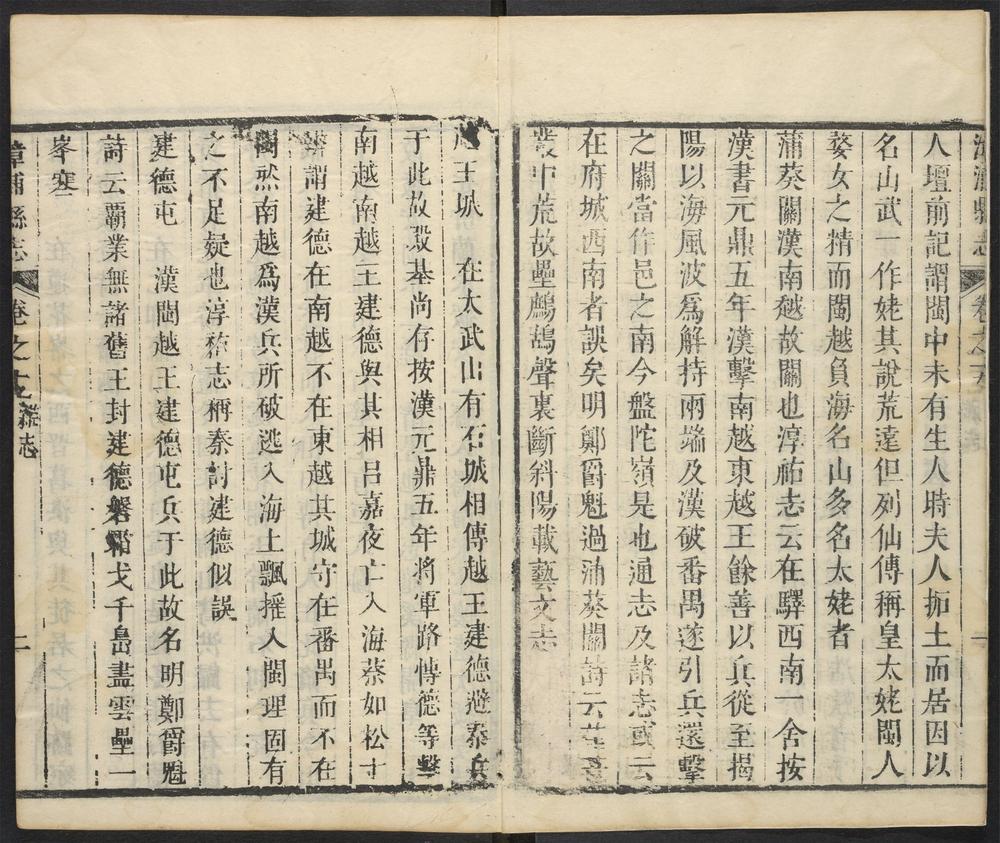 漳浦縣志 卷之十九
人壇前記謂閩中未有生人時夫人拓土而居因以
名山武一作姥其說荒遠但列仙傳稱皇太姥閩人
婺女之精而閩越負海名山多名太姥者
蒲葵關漢南越故關也淳祐志云在驛西南一舍按
漢書元鼎五年漢擊南越東越王餘善以兵從至揭
陽以海風波為解持兩端及漢破番禺遂引兵還擊
之關當作邑之南今盤陀嶺是也通志及諸志或云
在府城西南者誤矣明鄭爵魁過蒲葵關詩云
叢中荒故壘鷓鴣聲裏斷斜陽載藝文志
越王城 在太武山有石城相傳越王建德避秦兵
于此故殿基尚存按漢元鼎五年將軍路愽德等擊
南越南越王建德與其相呂嘉夜亡入海蔡如松十
辨謂建德在南越不在東越其城守在番禺而不在
閩然南越為漢兵所破逃入海上飄搖入閩理固有
之不足疑也淳祐志稱秦討建德似誤
建德屯 漢閩越王建德屯兵于此故名明鄭爵魁
詩云霸業無諸舊王封建德磐霜戈千島盡雲壘一
峯寒
漳浦縣志 卷之十九 雜志 二